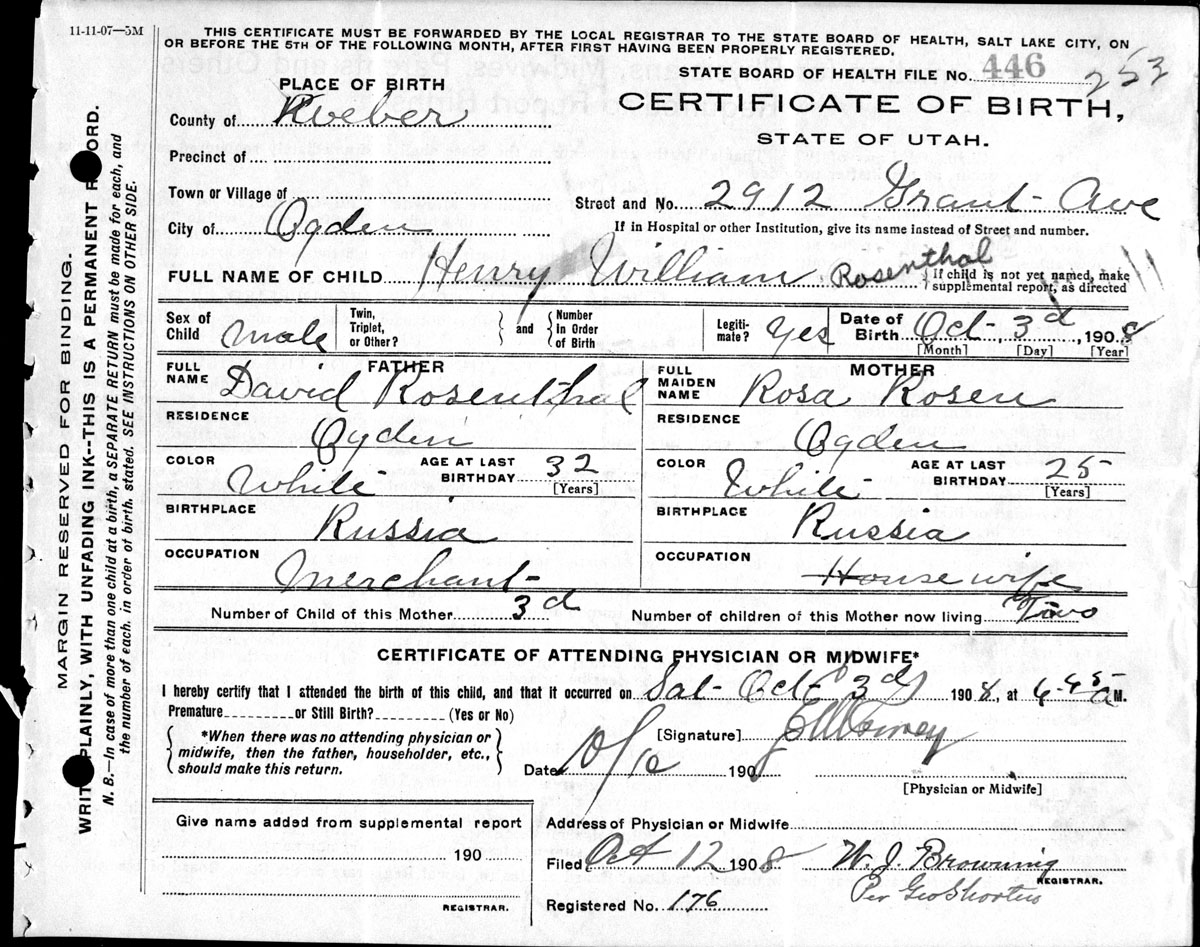 11-11-07—5M
THIS CERTIFICATE MUST BE FORWARDED BY THE LOCAL REGISTRAR TO THE STATE BOARD OF HEALTH, SALT LAKE CITY, ON
OR BEFORE THE 5TH OF THE FOLLOWING MONTH, AFTER FIRST HAVING BEEN PROPERLY REGISTERED.
STATE BOARD OF HEALTH FILE No. 446 253
PLACE OF BIRTH
CERTIFICATE OF BIRTH,
STATE OF UTAH.
County of Weber
Precinct of
Town or Village of
Street and No. 2912 Grant Ave
City of Ogden
If in Hospital or other Institution, give its name instead of Street and number.
FULL NAME OF CHILD Henry William Rosenthal
{If child is not yet named, make
supplemental report, as directed
Sex of Child Male
Twin, Triplet, or Other? } and { Number In Order of Birth
Legiti-mate? Yes
Date of Birth Oct - 3d, 1908
[Month] [Day] [Year]
FATHER
FULL NAME David Rosenthal
MOTHER
FULL MAIDEN NAME Rosa Rosen
RESIDENCE Ogden
RESIDENCE Ogden
COLOR White
AGE AT LAST BIRTHDAY 32 [Years]
COLOR White
AGE AT LAST BIRTHDAY 25 [Years]
BIRTHPLACE Russia
BIRTHPLACE Russia
OCCUPATION Merchant
OCCUPATION House wife
Number of Child of this Mother 3d
Number of children of this Mother now living Two
CERTIFICATE OF ATTENDING PHYSICIAN OR MIDWIFE*
I hereby certify that I attended the birth of this child, and that it occurred on Sat- Oct- 3d, 1908, at 6-45 a M.
Premature or Still Birth? (Yes or No)
{ *When there was no attending physician or
midwife, then the father, householder, etc.,
should make this return. }
[Signature]
Date 10/10 190
[Physician or Midwife]
Give name added from supplemental report
190
REGISTRAR.
Address of Physician or Midwife
Filed Oct 12 1908 W. J. Browning
REGISTRAR.
Per Geo Shorten
Registered No. 176
MARGIN RESERVED FOR BINDING.
WRIT PLAINLY, WITH UNFADING INK--THIS IS A PERMANENT R ORD.
N. B.—In case of more than one child at a birth, a SEPARATE RETURN must be made for each, and
the number of each, in order of birth, stated. SEE INSTRUCTIONS ON OTHER SIDE.